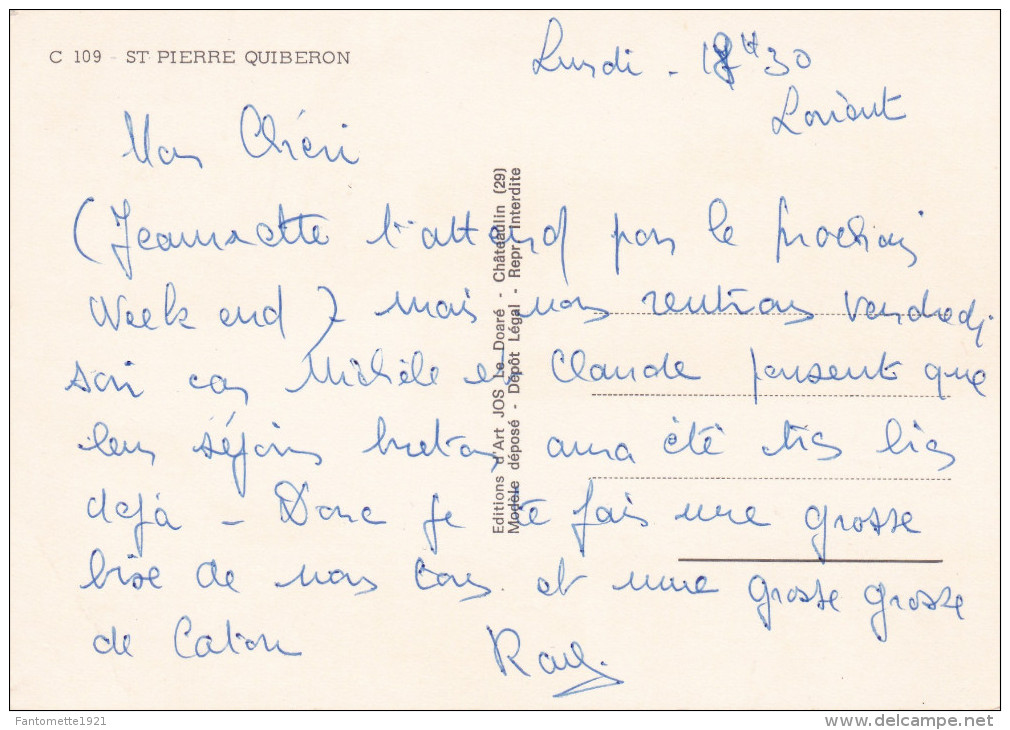 C 109 - ST PIERRE QUIBERON
Lundi - 18H30
Lorient
Mon Chéri
(Jeannette t'attend pour le prochain
Week end) mais nous rentrons vendredi
soir car Michèle et Claude pensent que
leur séjour breton aura été très bien
déjà - Donc je te fais une grosse
bise de nous tous et une grosse grosse
de
Editions d'Art JOS Le Doaré - Châteaulin (29)
Modèle déposé - Dépôt Légal - Repr. Interdite
Fantomette1921
delcampe.net